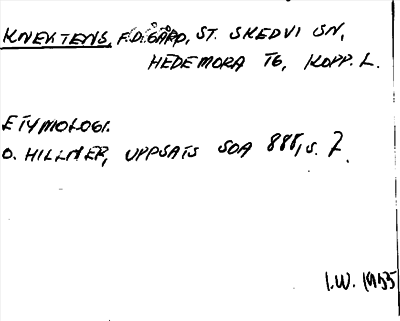 KNEKTENS, F.D. GÅRD, ST. SKEDVI SN,
HEDEMORA TG, KOPP. L.
ETYMOLOGI.
O. HILLNER, UPPSATS SOA 888, S. 7.
I.W. 1955